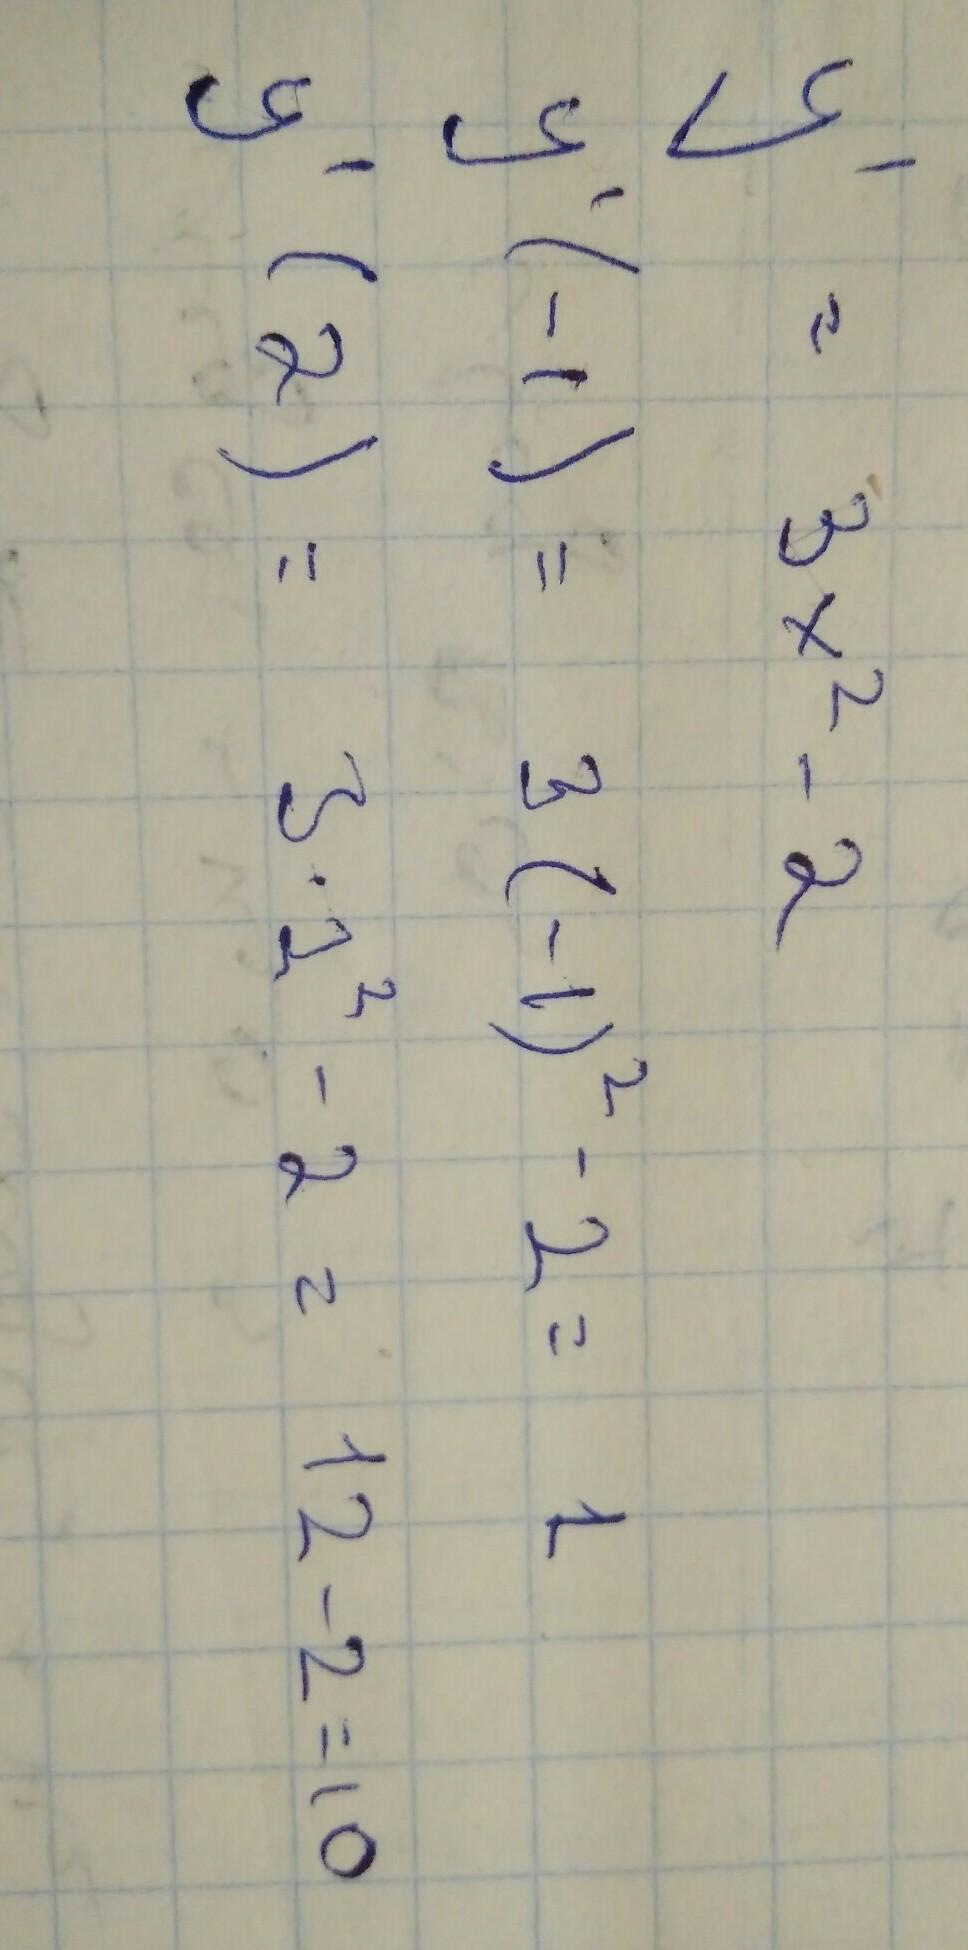 y' = 3x² - 2
y'(-1) = 3(-1)² - 2 = 1
y'(2) = 3·2² - 2 = 12 - 2 = 10